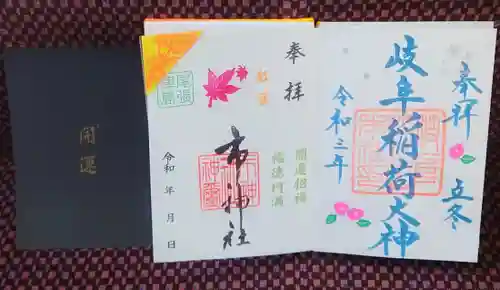 開運
奉拝
紅葉
尾張
開運招福
福徳円満
市神社
令和 年 月 日
奉拝
立冬
岐阜稲荷大神
令和三年